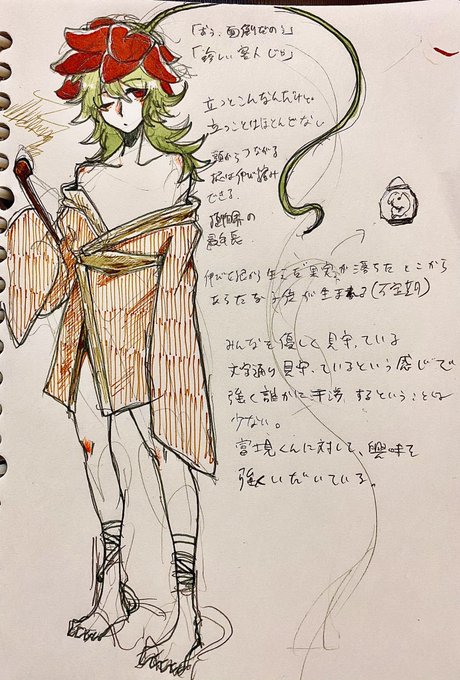 「もう、面倒なのう」
「珍しい客人じゃ」
立つとこんなんだけど。
立つことはほとんどない
頭からつながる
根は伸び縮み
できる。
の
最年長
伸びた根から生えた果実が落ちたところから
あらたな子供が生まれる(不定期)
みんなを優しく見守っている
文字通り見守っているという感じで
強く誰かに干渉するということは
少ない。
宮境くんに対して、興味を
強くいだいている。